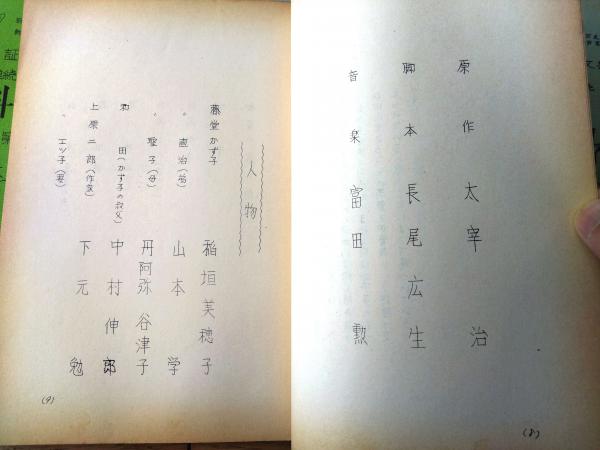 原作 太宰治
脚本 長尾広生
音楽 冨田勲
(8)
人物
藤堂かず子 稲垣美穂子
〃 直治(弟) 山本学
〃 聖子(母) 丹阿弥谷津子
和田(かず子の叔父) 中村伸郎
上原二郎(作家) 下元勉
〃 エツ子(妻)
(9)